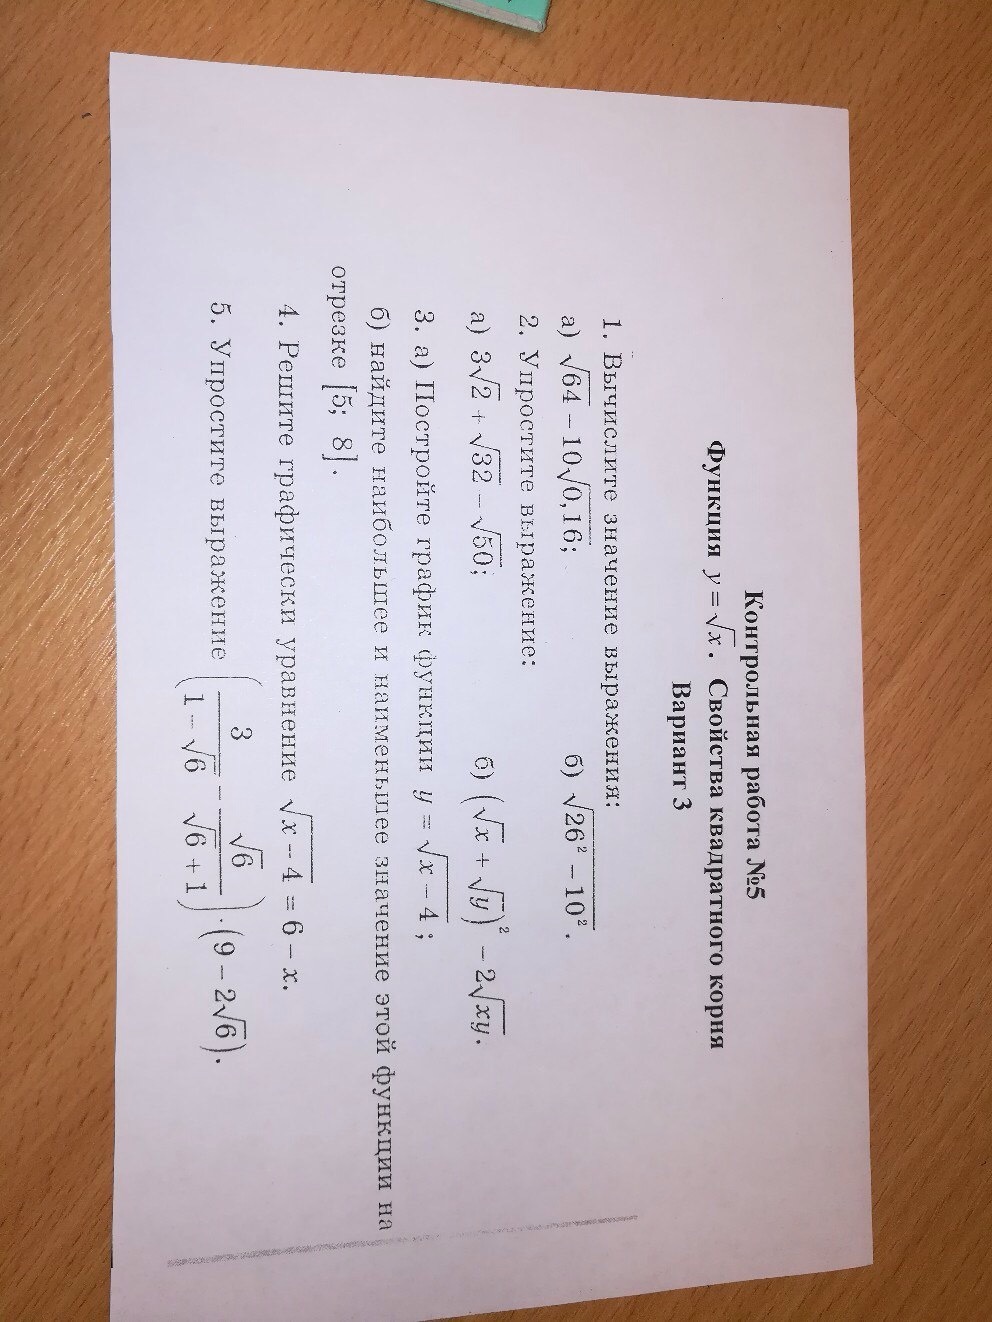 Контрольная работа №5
Функция y = √x. Свойства квадратного корня
Вариант 3
1. Вычислите значение выражения:
а) √64 − 10√0,16; б) √(26² − 10²).
2. Упростите выражение:
а) 3√2 + √32 − √50; б) (√x + √y)² − 2√(xy).
3. а) Постройте график функции y = √(x − 4);
б) найдите наибольшее и наименьшее значение этой функции на
отрезке [5; 8].
4. Решите графически уравнение √(x − 4) = 6 − x.
5. Упростите выражение (3/(1 − √6) − √6/(√6 + 1)) · (9 − 2√6).